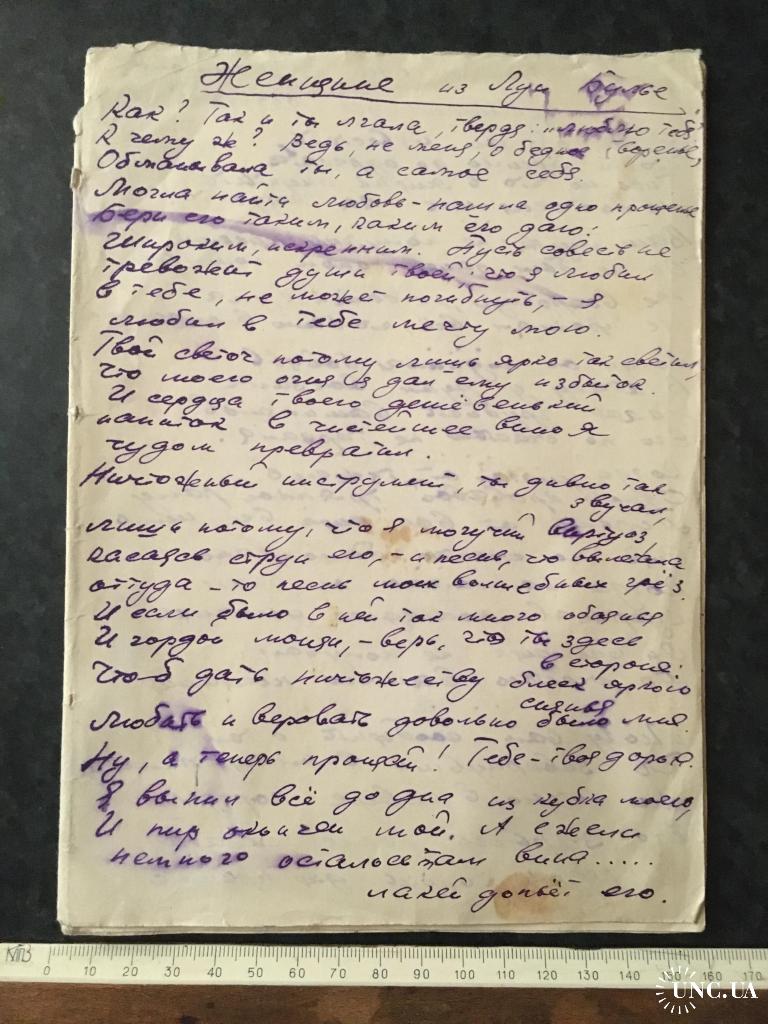 Женщине из Луи Булье
Как? Так и ты лгала, твердя: "люблю тебя"
К чему ж? Ведь, не меня, о бедное творенье,
Обманывала ты, а самое себя.
Могла найти любовь - нашла одно прощенье
Бери его таким, каким его даю:
Широким, искренним. Пусть совесть не
тревожит души твоей; что я любил
в тебе, не может погибнуть, - я
любил в тебе мечту мою.
Твой светоч потому лишь ярко так светил,
Что моего огня я дал ему избыток.
И сердца твоего дешёвенький
напиток в чистейшее вино я
чудом превратил.
Ничтожный инструмент, ты дивно так
звучал,
лишь потому, что я могучий виртуоз,
касаясь струн его, - и песнь, что вылетала
оттуда - то песнь моих волшебных грёз.
И если было в ней так много обаянья
И гордой мощи, - верь, что ты здесь
в стороне:
Чтоб дать ничтожеству блеск яркого
сиянья
Любить и веровать довольно было мне.
Ну, а теперь прощай! Тебе - твоя дорога.
Я выпил всё до дна из кубка моего,
И пир окончен мой. А ежели
немного осталось там вина.....
лакей допьёт его.
КПЗ
0 10 20 30 40 50 60 70 80 90 100 110 120 130 140 150 160 170
UNC.UA